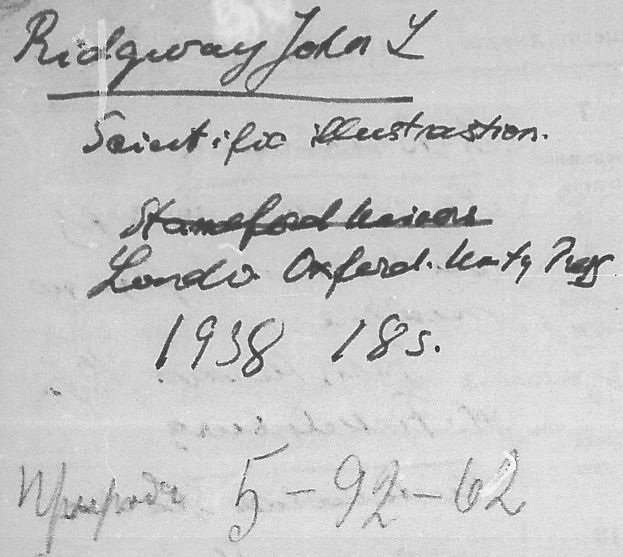 Ridgway John L
Scientific illustrastion.
Staneford Univers
London Oxford. Unity Press
1938 18s.
Природа 5-92-62